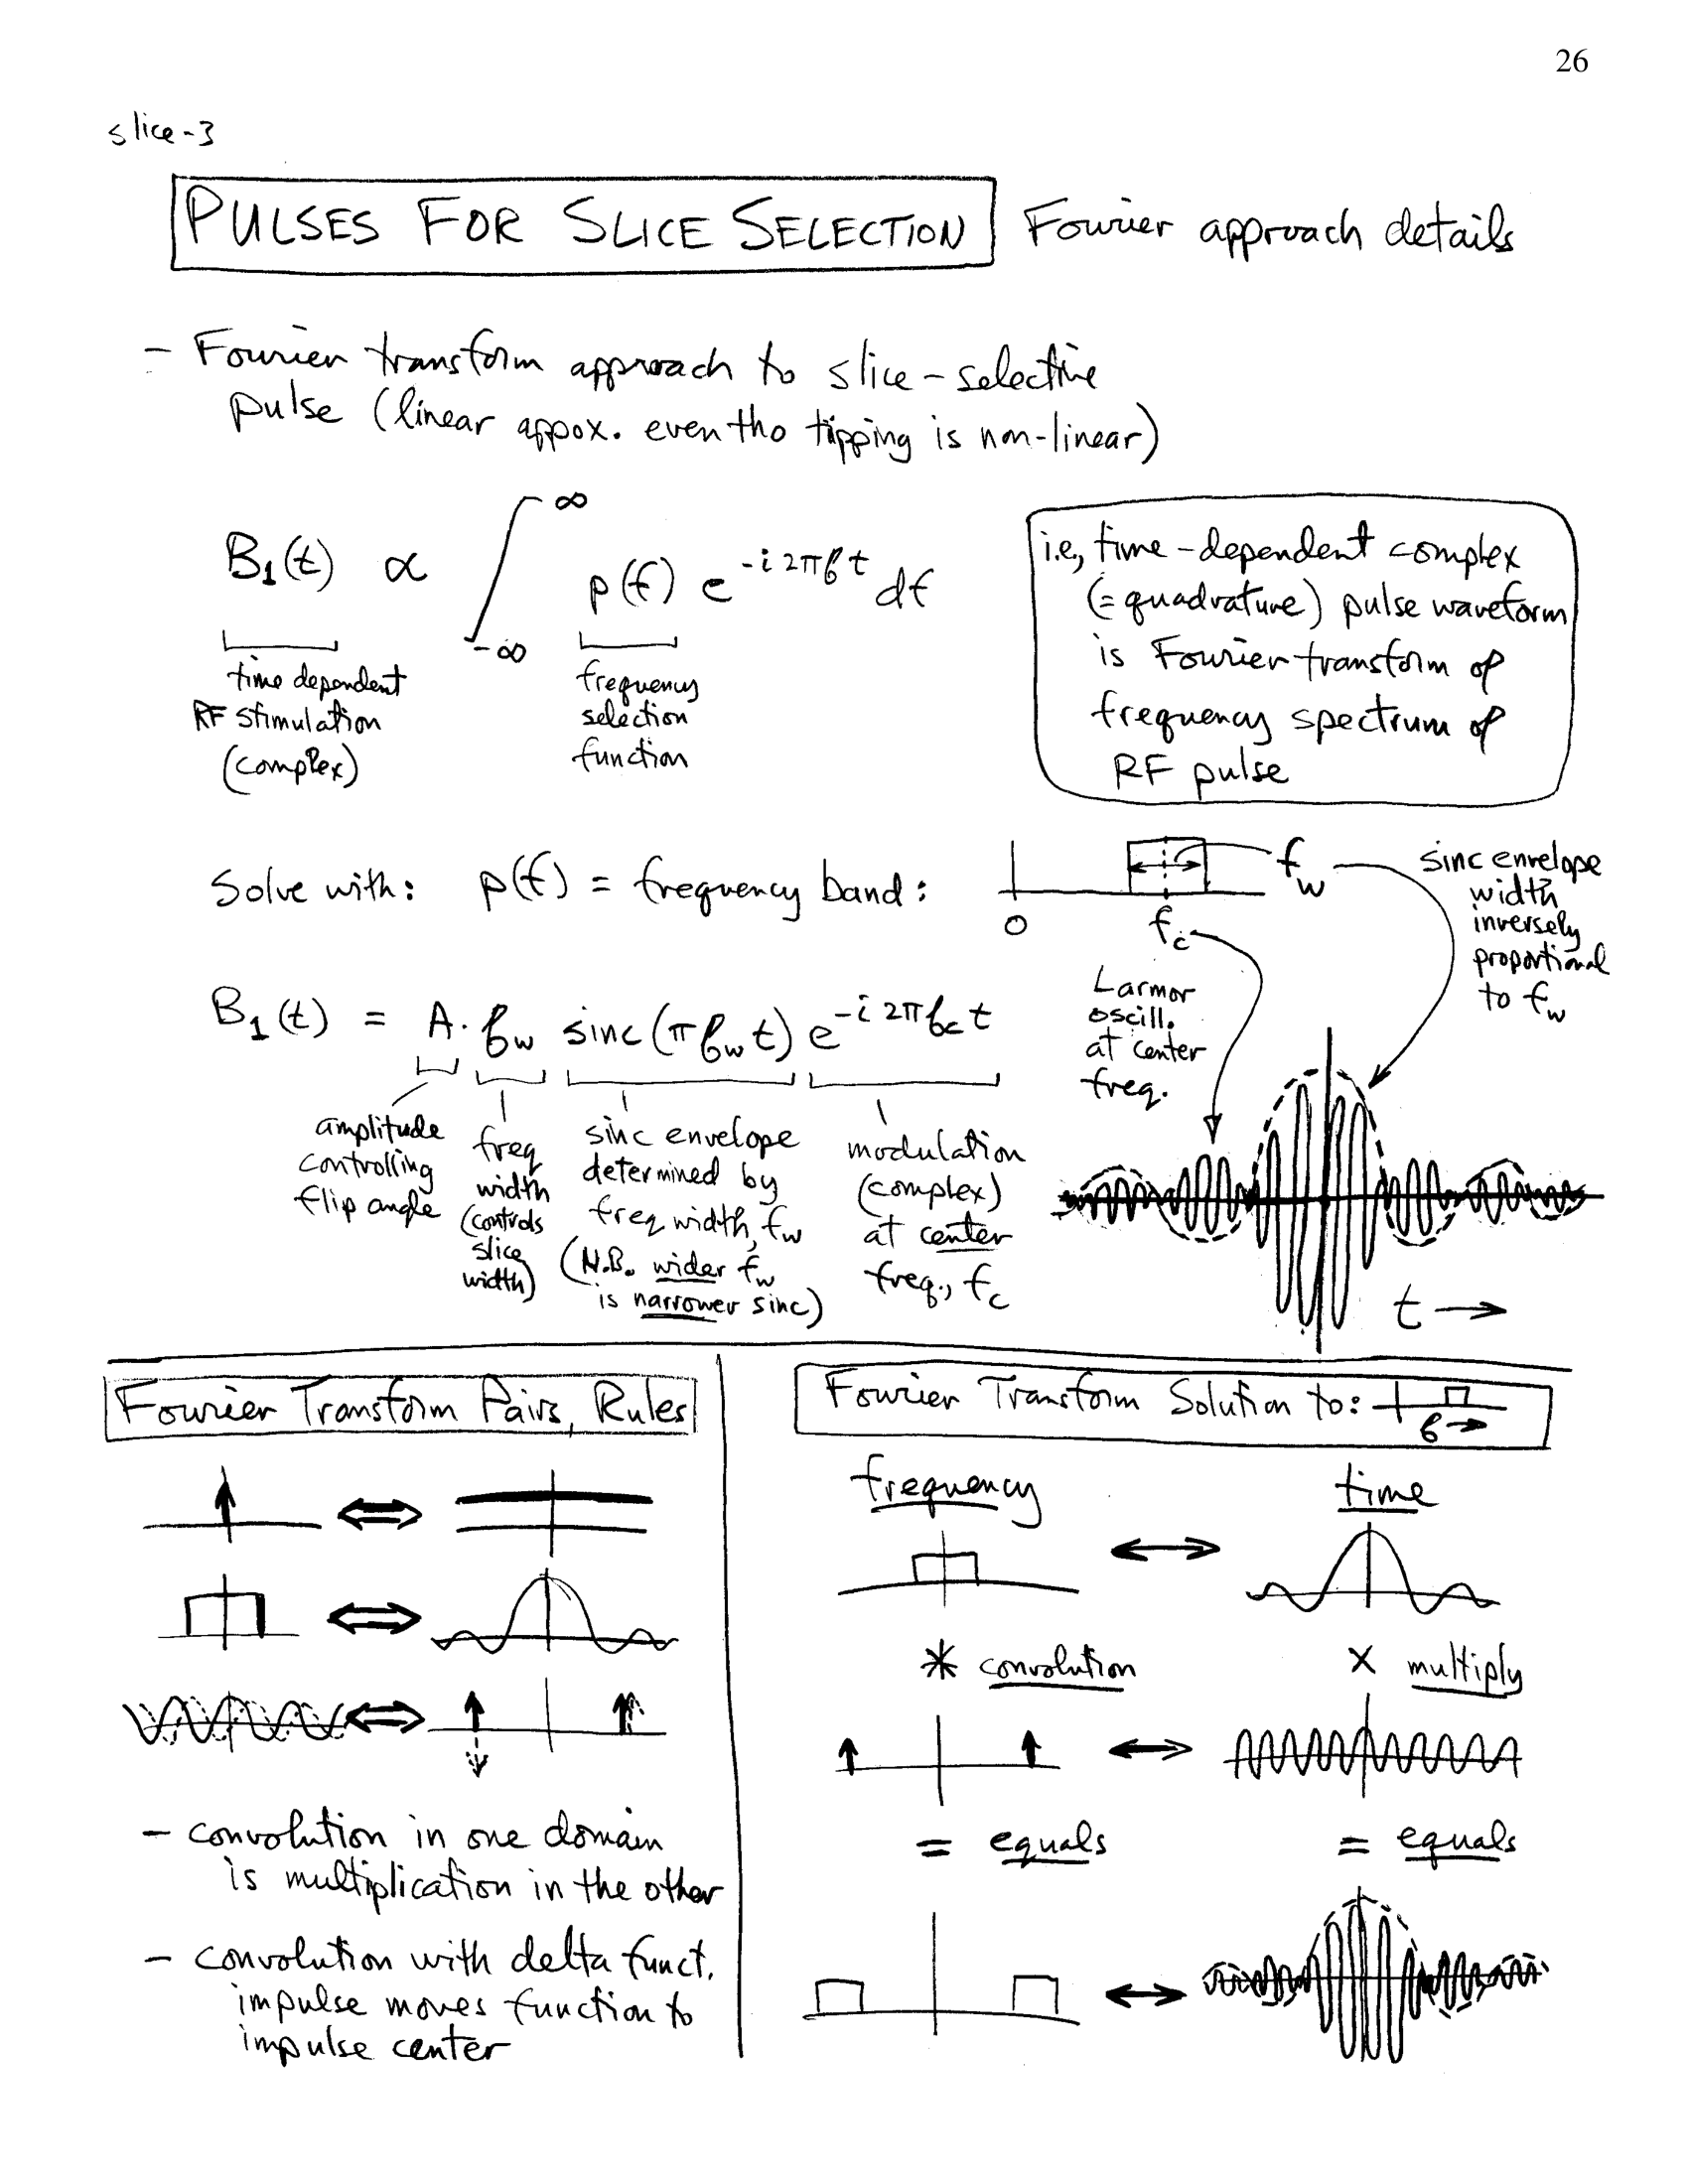 26
slice-3
PULSES FOR SLICE SELECTION Fourier approach details
- Fourier transform approach to slice-selective
pulse (linear appox. eventho tipping is non-linear)
B₁(t) ∝ ∫_{-∞}^{∞} p(f) e^{-i2πft} df
time dependent
RF stimulation
(complex)
frequency
selection
function
i.e., time-dependent complex
(= quadrature) pulse waveform
is Fourier transform of
frequency spectrum of
RF pulse
Solve with: p(f) = frequency band:
0
f_c
f_w
sinc envelope
width
inversely
proportional
to f_w
Larmor
oscill.
at center
freq.
B₁(t) = A · f_w sinc(πf_w t) e^{-i2πf_c t}
amplitude
controlling
flip angle
freq
width
(controls
slice
width)
sinc envelope
determined by
freq width, f_w
(N.B. wider f_w
is narrower sinc)
modulation
(complex)
at center
freq., f_c
t →
Fourier Transform Pairs, Rules
- convolution in one domain
is multiplication in the other
- convolution with delta funct.
impulse moves function to
impulse center
Fourier Transform Solution to:
f →
frequency ↔ time
* convolution × multiply
= equals = equals